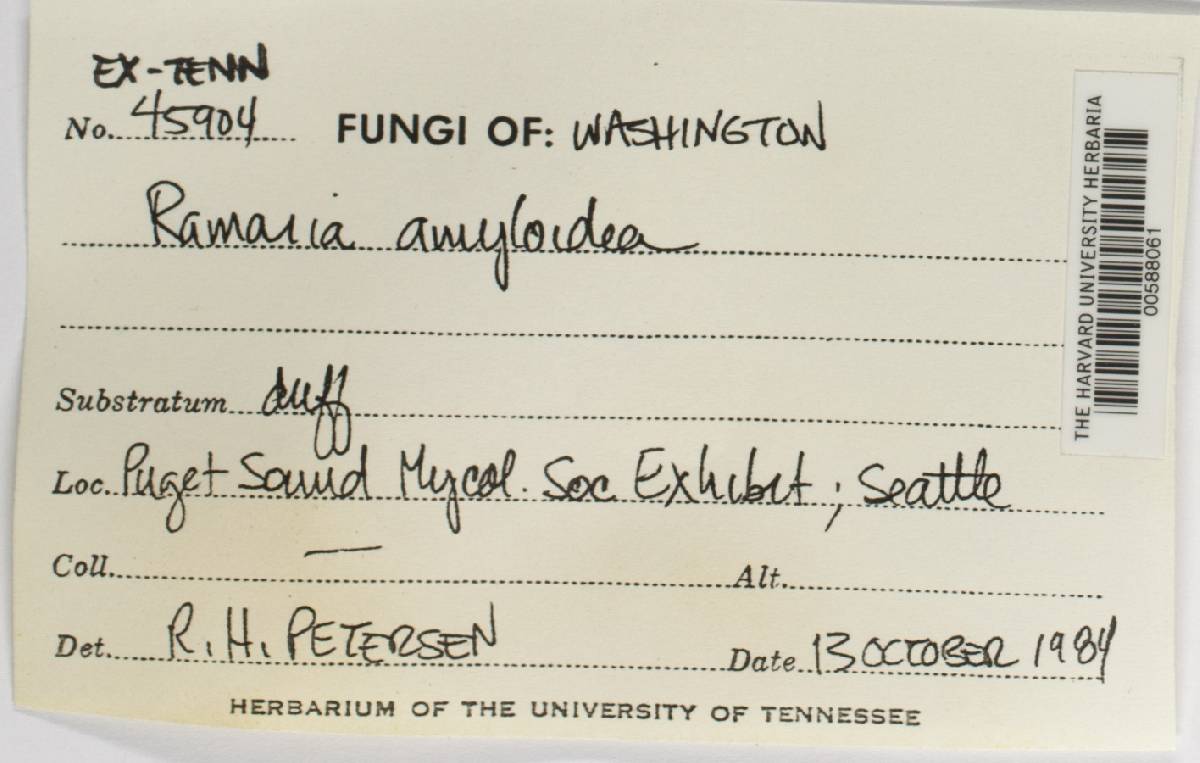 EX-TENN
No. 45904 FUNGI OF: WASHINGTON
Ramaria amyloidea
Substratum duff
Loc. Puget Sound Mycol. Soc. Exhibit; Seattle
Coll. — Alt.
Det. R. H. PETERSEN Date 13 OCTOBER 1984
HERBARIUM OF THE UNIVERSITY OF TENNESSEE
THE HARVARD UNIVERSITY HERBARIA
00588061